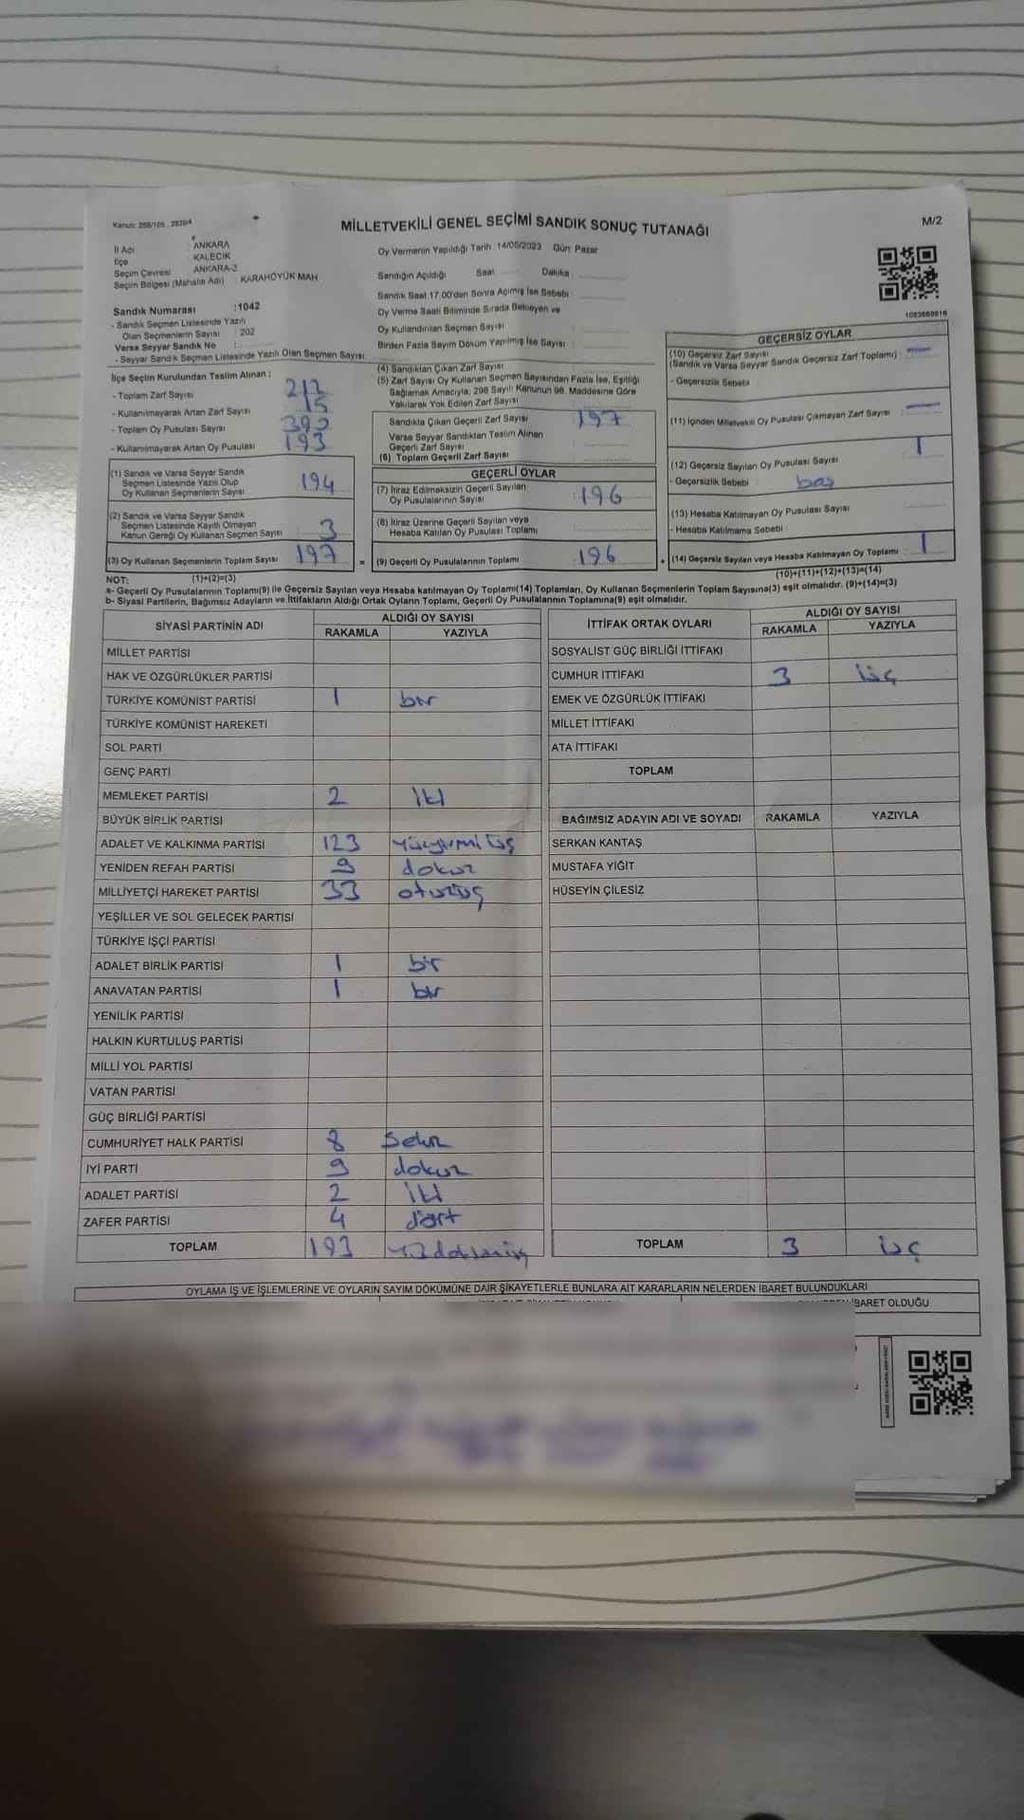 MİLLETVEKİLİ GENEL SEÇİMİ SANDIK SONUÇ TUTANAĞI
M/2
İl Adı : ANKARA
İlçe : KALECİK
Seçim Çevresi : ANKARA-2
Seçim Bölgesi (Mahalle Adı) : KARAHÖYÜK MAH
Sandık Numarası :1042
- Sandık Seçmen Listesinde Yazılı
Olan Seçmenlerin Sayısı : 202
Varsa Seyyar Sandık No :
- Seyyar Sandık Seçmen Listesinde Yazılı Olan Seçmen Sayısı
Oy Vermenin Yapıldığı Tarih :14/05/2023 Gün: Pazar
Sandığın Açıldığı Saat Dakika
Sandık Saat 17.00'den Sonra Açılmış İse Sebebi
Oy Verme Saati Bitiminde Sırada Bekleyen ve
Oy Kullandırılan Seçmen Sayısı
Birden Fazla Sayım Döküm Yapılmış İse Sayısı :
1083660816
İlçe Seçim Kurulundan Teslim Alınan :
- Toplam Zarf Sayısı 212
- Kullanılmayarak Artan Zarf Sayısı 15
- Toplam Oy Pusulası Sayısı
- Kullanılmayarak Artan Oy Pusulası 193
(1) Sandık ve Varsa Seyyar Sandık
Seçmen Listesinde Yazılı Olup
Oy Kullanan Seçmenlerin Sayısı 194
(2) Sandık ve Varsa Seyyar Sandık
Seçmen Listesinde Kayıtlı Olmayan
Kanun Gereği Oy Kullanan Seçmen Sayısı 3
(3) Oy Kullanan Seçmenlerin Toplam Sayısı 197
(1)+(2)=(3)
(4) Sandıktan Çıkan Zarf Sayısı
(5) Zarf Sayısı Oy Kullanan Seçmen Sayısından Fazla İse, Eşitliği
Sağlamak Amacıyla; 298 Sayılı Kanunun 98. Maddesine Göre
Yakılarak Yok Edilen Zarf Sayısı
Sandıkta Çıkan Geçerli Zarf Sayısı 197
Varsa Seyyar Sandıktan Teslim Alınan
Geçerli Zarf Sayısı
(6) Toplam Geçerli Zarf Sayısı
GEÇERLİ OYLAR
(7) İtiraz Edilmeksizin Geçerli Sayılan
Oy Pusulalarının Sayısı 196
(8) İtiraz Üzerine Geçerli Sayılan veya
Hesaba Katılan Oy Pusulası Toplamı
= (9) Geçerli Oy Pusulalarının Toplamı 196
GEÇERSİZ OYLAR
(10) Geçersiz Zarf Sayısı
(Sandık ve Varsa Seyyar Sandık Geçersiz Zarf Toplamı)
- Geçersizlik Sebebi
(11) İçinden Milletvekili Oy Pusulası Çıkmayan Zarf Sayısı
(12) Geçersiz Sayılan Oy Pusulası Sayısı 1
- Geçersizlik Sebebi boş
(13) Hesaba Katılmayan Oy Pusulası Sayısı
- Hesaba Katılmama Sebebi
+ (14) Geçersiz Sayılan veya Hesaba Katılmayan Oy Toplamı 1
(10)+(11)+(12)+(13)=(14)
NOT:
a- Geçerli Oy Pusulalarının Toplamı(9) ile Geçersiz Sayılan veya Hesaba katılmayan Oy Toplamı(14) Toplamları, Oy Kullanan Seçmenlerin Toplam Sayısına(3) eşit olmalıdır. (9)+(14)=(3)
b- Siyasi Partilerin, Bağımsız Adayların ve İttifakların Aldığı Ortak Oyların Toplamı, Geçerli Oy Pusulalarının Toplamına(9) eşit olmalıdır.
SİYASİ PARTİNİN ADI
ALDIĞI OY SAYISI
RAKAMLA YAZIYLA
MİLLET PARTİSİ
HAK VE ÖZGÜRLÜKLER PARTİSİ
TÜRKİYE KOMÜNİST PARTİSİ 1 bir
TÜRKİYE KOMÜNİST HAREKETİ
SOL PARTİ
GENÇ PARTİ
MEMLEKET PARTİSİ 2 iki
BÜYÜK BİRLİK PARTİSİ
ADALET VE KALKINMA PARTİSİ 123 yüzyirmiüç
YENİDEN REFAH PARTİSİ 9 dokuz
MİLLİYETÇİ HAREKET PARTİSİ 33 otuzüç
YEŞİLLER VE SOL GELECEK PARTİSİ
TÜRKİYE İŞÇİ PARTİSİ
ADALET BİRLİK PARTİSİ 1 bir
ANAVATAN PARTİSİ 1 bir
YENİLİK PARTİSİ
HALKIN KURTULUŞ PARTİSİ
MİLLİ YOL PARTİSİ
VATAN PARTİSİ
GÜÇ BİRLİĞİ PARTİSİ
CUMHURİYET HALK PARTİSİ 8 Sekiz
İYİ PARTİ 9 dokuz
ADALET PARTİSİ 2 iki
ZAFER PARTİSİ 4 dört
TOPLAM 193
İTTİFAK ORTAK OYLARI
ALDIĞI OY SAYISI
RAKAMLA YAZIYLA
SOSYALİST GÜÇ BİRLİĞİ İTTİFAKI
CUMHUR İTTİFAKI 3 üç
EMEK VE ÖZGÜRLÜK İTTİFAKI
MİLLET İTTİFAKI
ATA İTTİFAKI
TOPLAM
BAĞIMSIZ ADAYIN ADI VE SOYADI RAKAMLA YAZIYLA
SERKAN KANTAŞ
MUSTAFA YİĞİT
HÜSEYİN ÇİLESİZ
TOPLAM 3 üç
OYLAMA İŞ VE İŞLEMLERİNE VE OYLARIN SAYIM DÖKÜMÜNE DAİR ŞİKAYETLERLE BUNLARA AİT KARARLARIN NELERDEN İBARET BULUNDUKLARI
İBARET OLDUĞU